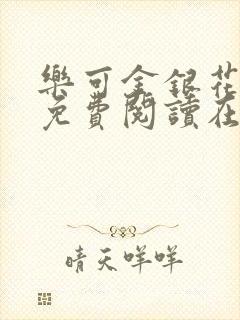 樂可金銀花
免費閱讀在
晴天咩咩